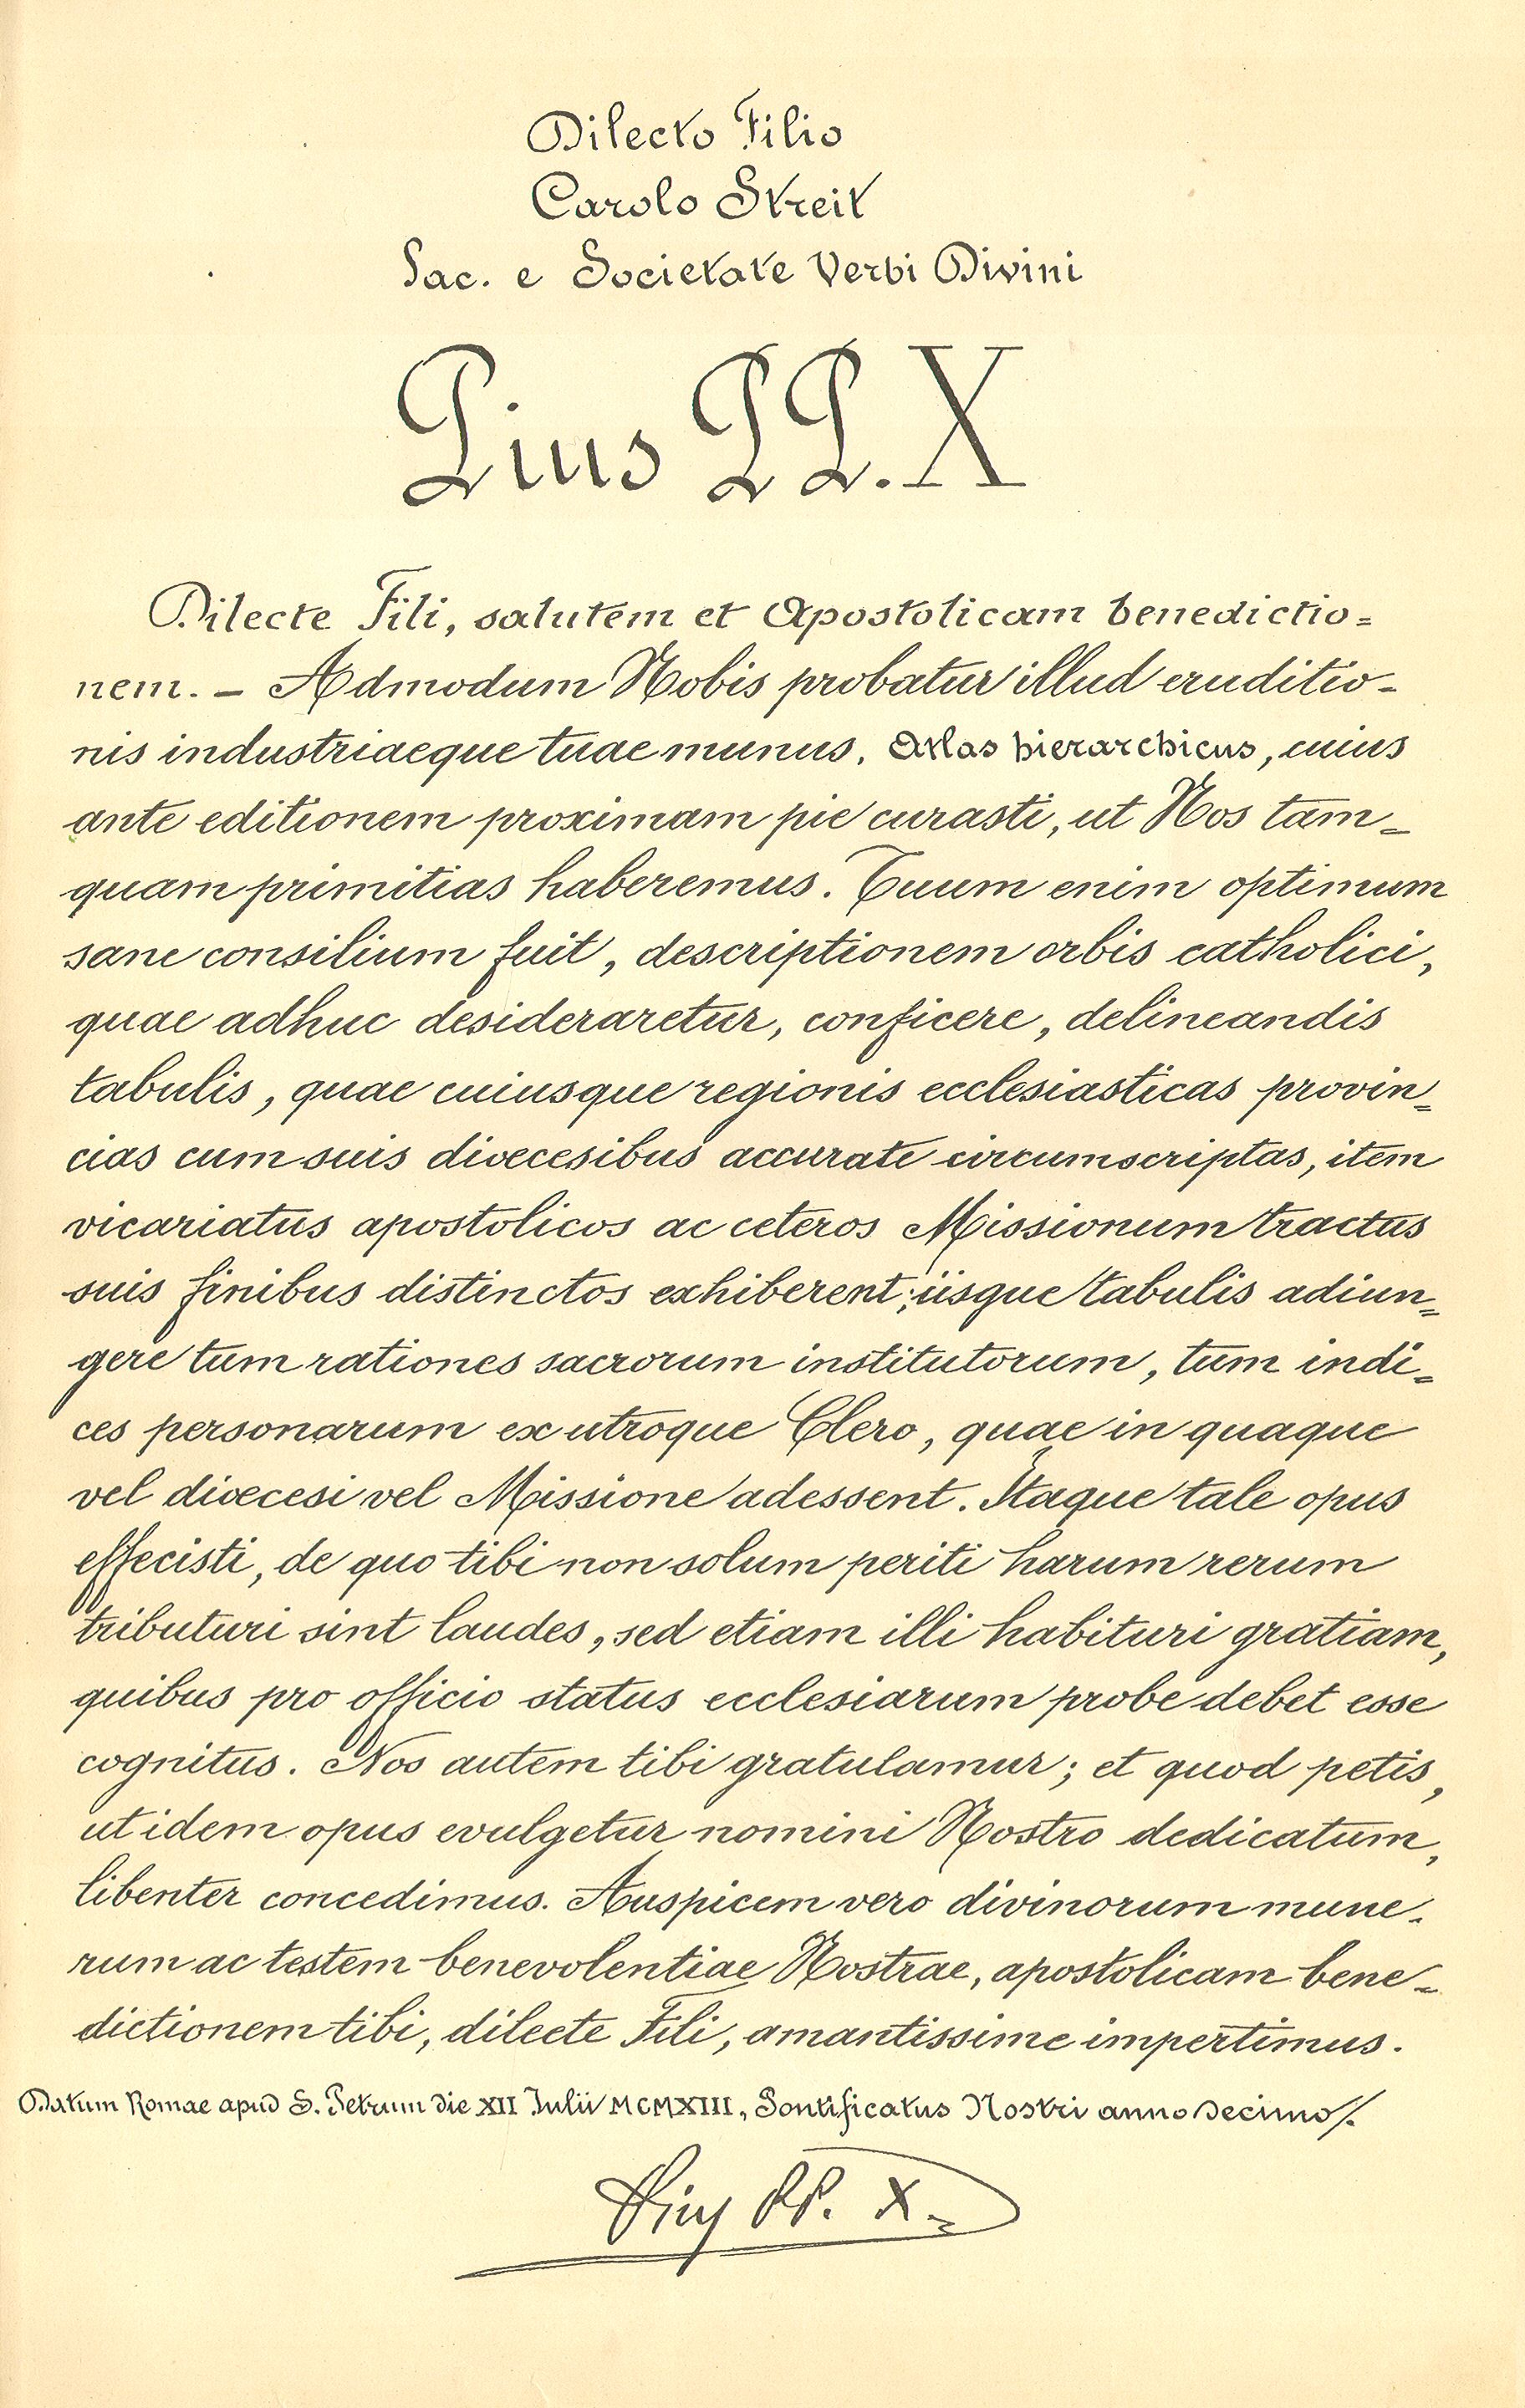 Dilecto Filio
Carolo Streit
Sac. e Societate Verbi Divini
Pius PP. X
Dilecte Fili, salutem et Apostolicam benedictio=
nem. – Admodum Nobis probatur illud eruditio-
nis industriaeque tuae munus, Atlas hierarchicus, cuius
ante editionem proximam pie curasti, ut Nos tam=
quam primitias haberemus. Tuum enim optimum
sane consilium fuit, descriptionem orbis catholici,
quae adhuc desideraretur, conficere, delineandis
tabulis, quae cuiusque regionis ecclesiasticas provin=
cias cum suis dioecesibus accurate circumscriptas, item
vicariatus apostolicos ac ceteros Missionum tractus
suis finibus distinctos exhiberent; iisque tabulis adiun=
gere tum rationes sacrorum institutorum, tum indi=
ces personarum ex utroque Clero, quae in quaque
vel dioecesi vel Missione adessent. Itaque tale opus
effecisti, de quo tibi non solum periti harum rerum
tributuri sint laudes, sed etiam illi habituri gratiam,
quibus pro officio status ecclesiarum probe debet esse
cognitus. Nos autem tibi gratulamur; et quod petis,
ut idem opus evulgetur nomini Nostro dedicatum,
libenter concedimus. Auspicem vero divinorum mune-
rum ac testem benevolentiae Nostrae, apostolicam bene=
dictionem tibi, dilecte Fili, amantissime impertimus.
Datum Romae apud S. Petrum die XII Iulii MCMXIII, Pontificatus Nostri anno decimo/.
Pius PP. X.